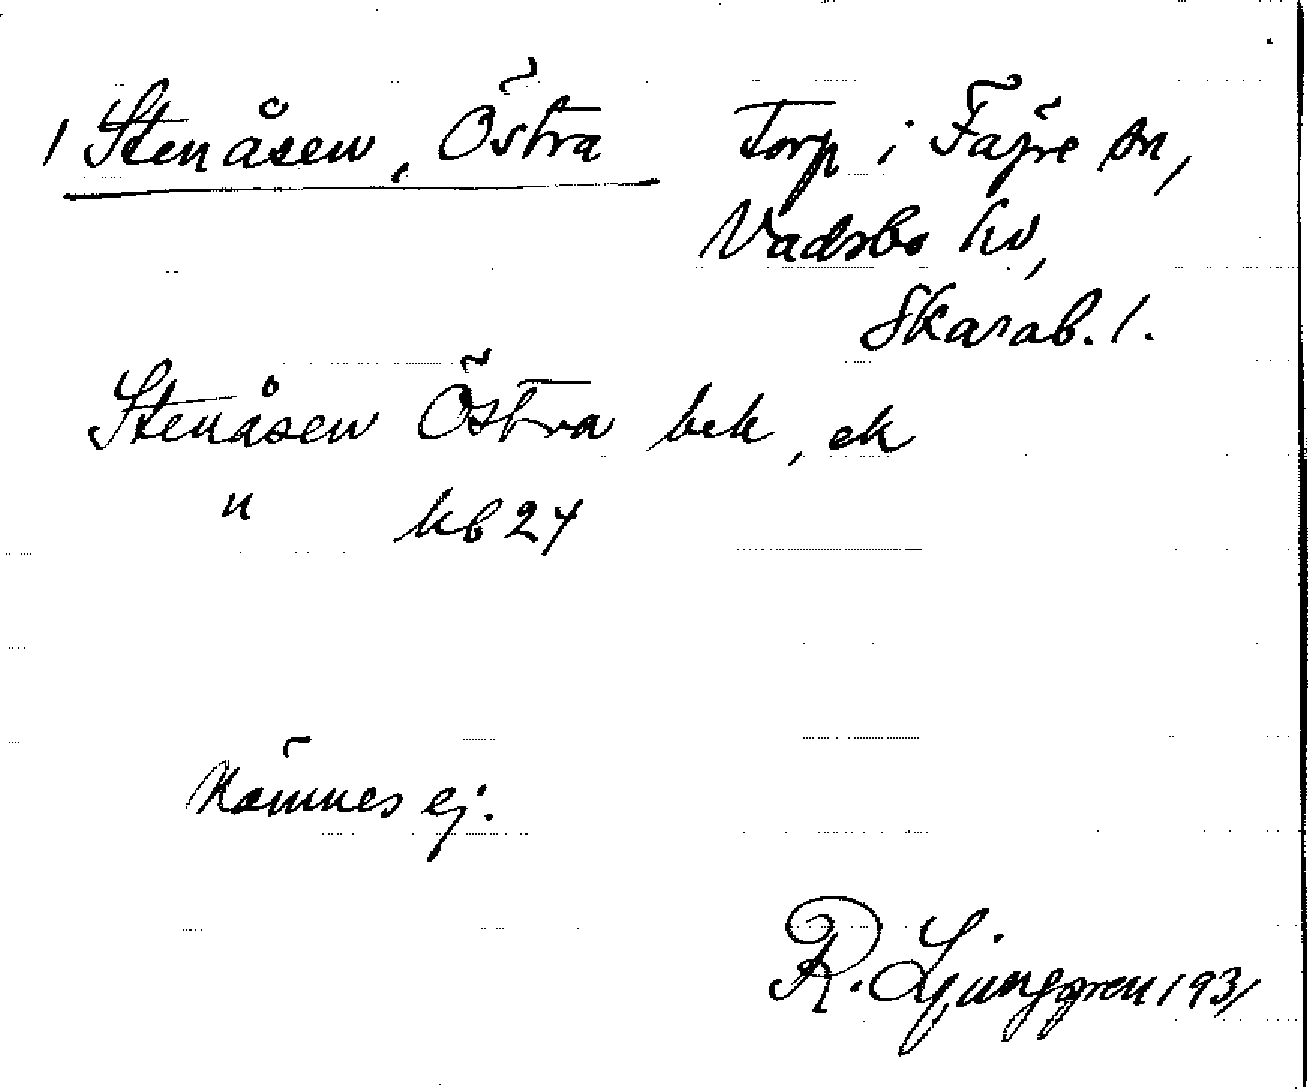 1 Stenåsen, Östra Torp i Fägre sn,
Vadsbo hd,
Skarab. l.
Stenåsen Östra bek, ek
" kb 24
Kännes ej.
R. Ljunggren 1931